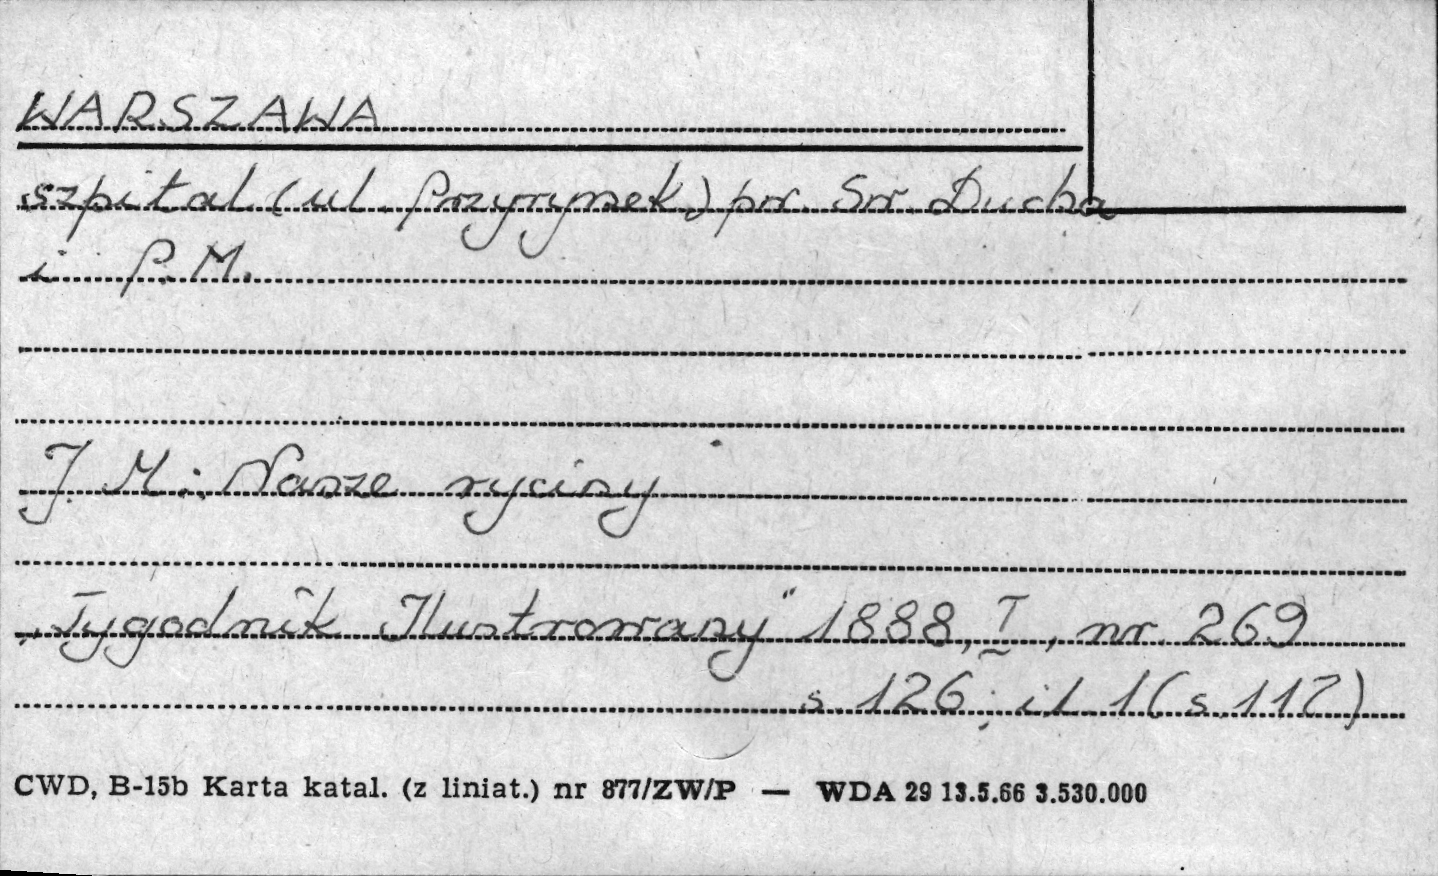 WARSZAWA
szpital (ul. Przyrynek) pw. Św. Ducha
i P.M.
J. M.: Nasze ryciny
„Tygodnik Ilustrowany" 1888, I, nr 269
s. 126; il. 1 (s. 117)
CWD, B-15b Karta katal. (z liniat.) nr 877/ZW/P — WDA 29 13.5.66 3.530.000